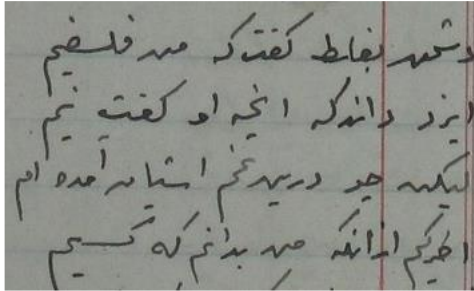 دشمن بغلط گفت که من فلسفیم
ایزد داند که انچه او گفت نیم
لیکن چو درین غم اشیان آمده ام
اخر کم از انکه من بدانم که کیم